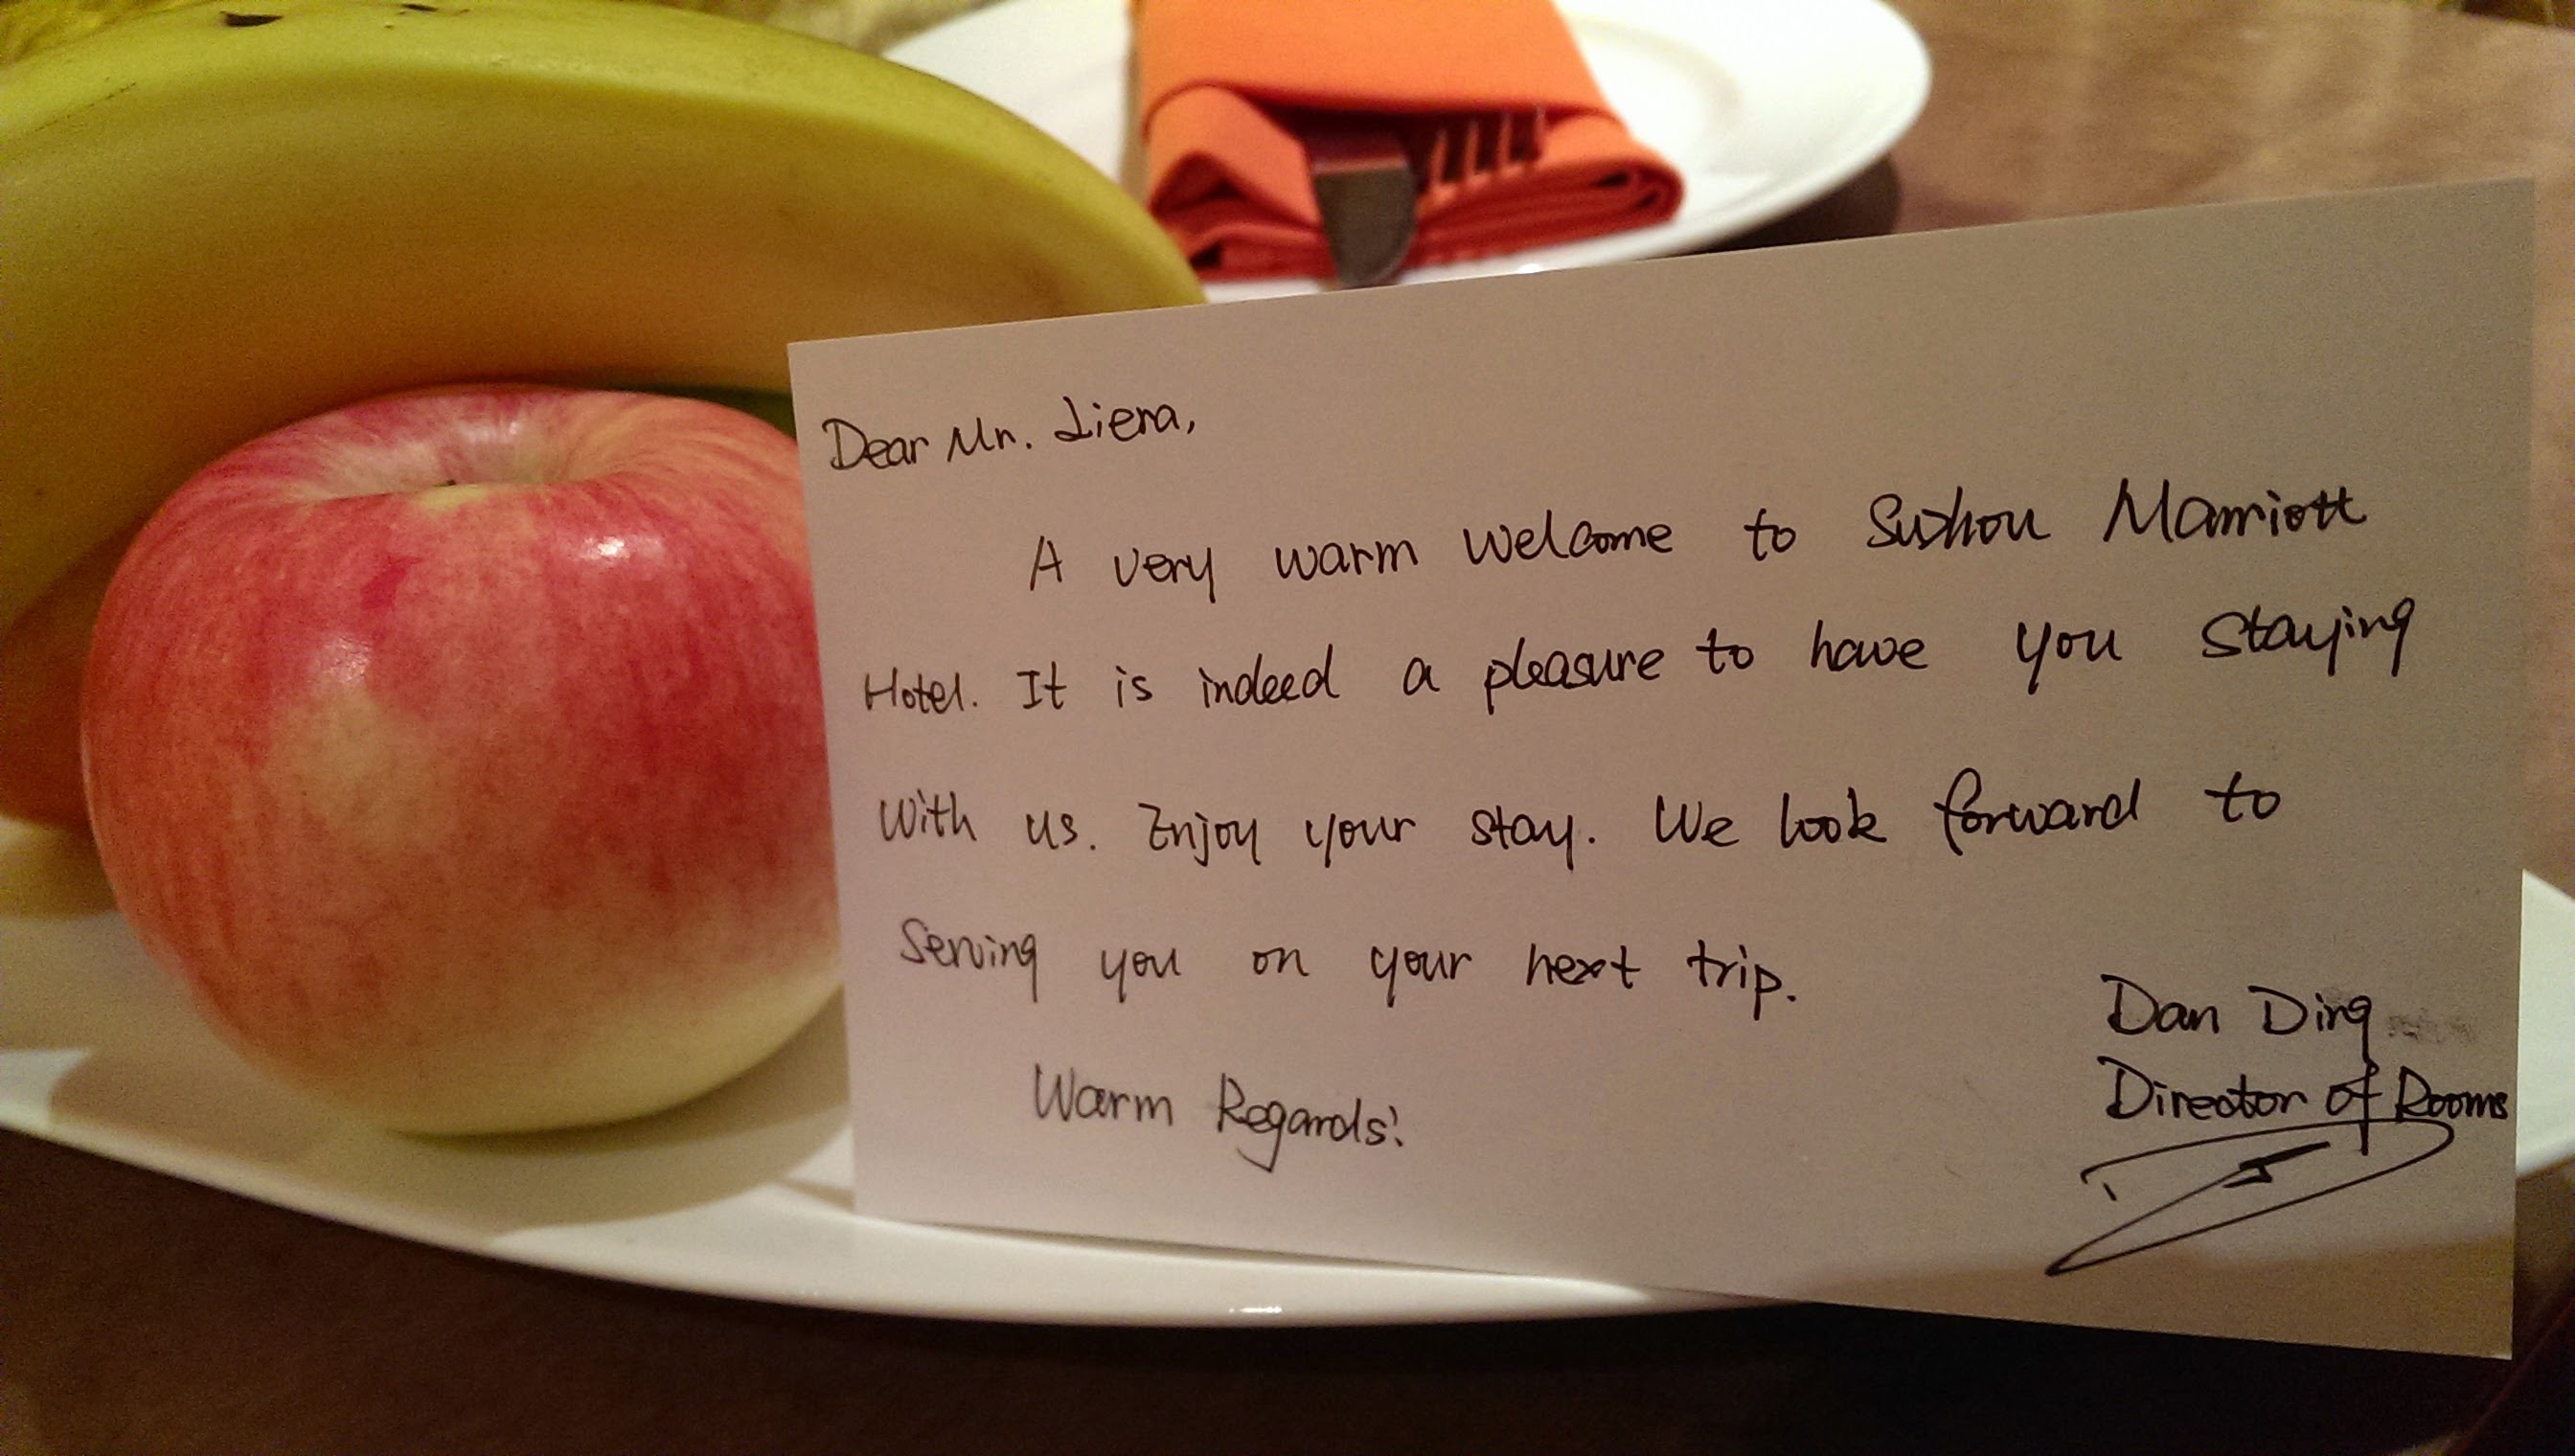 Dear Mr. Liera,
A very warm welcome to Suzhou Marriott
Hotel. It is indeed a pleasure to have you staying
with us. Enjoy your stay. We look forward to
serving you on your next trip.
Warm Regards!
Dan Ding
Director of Rooms